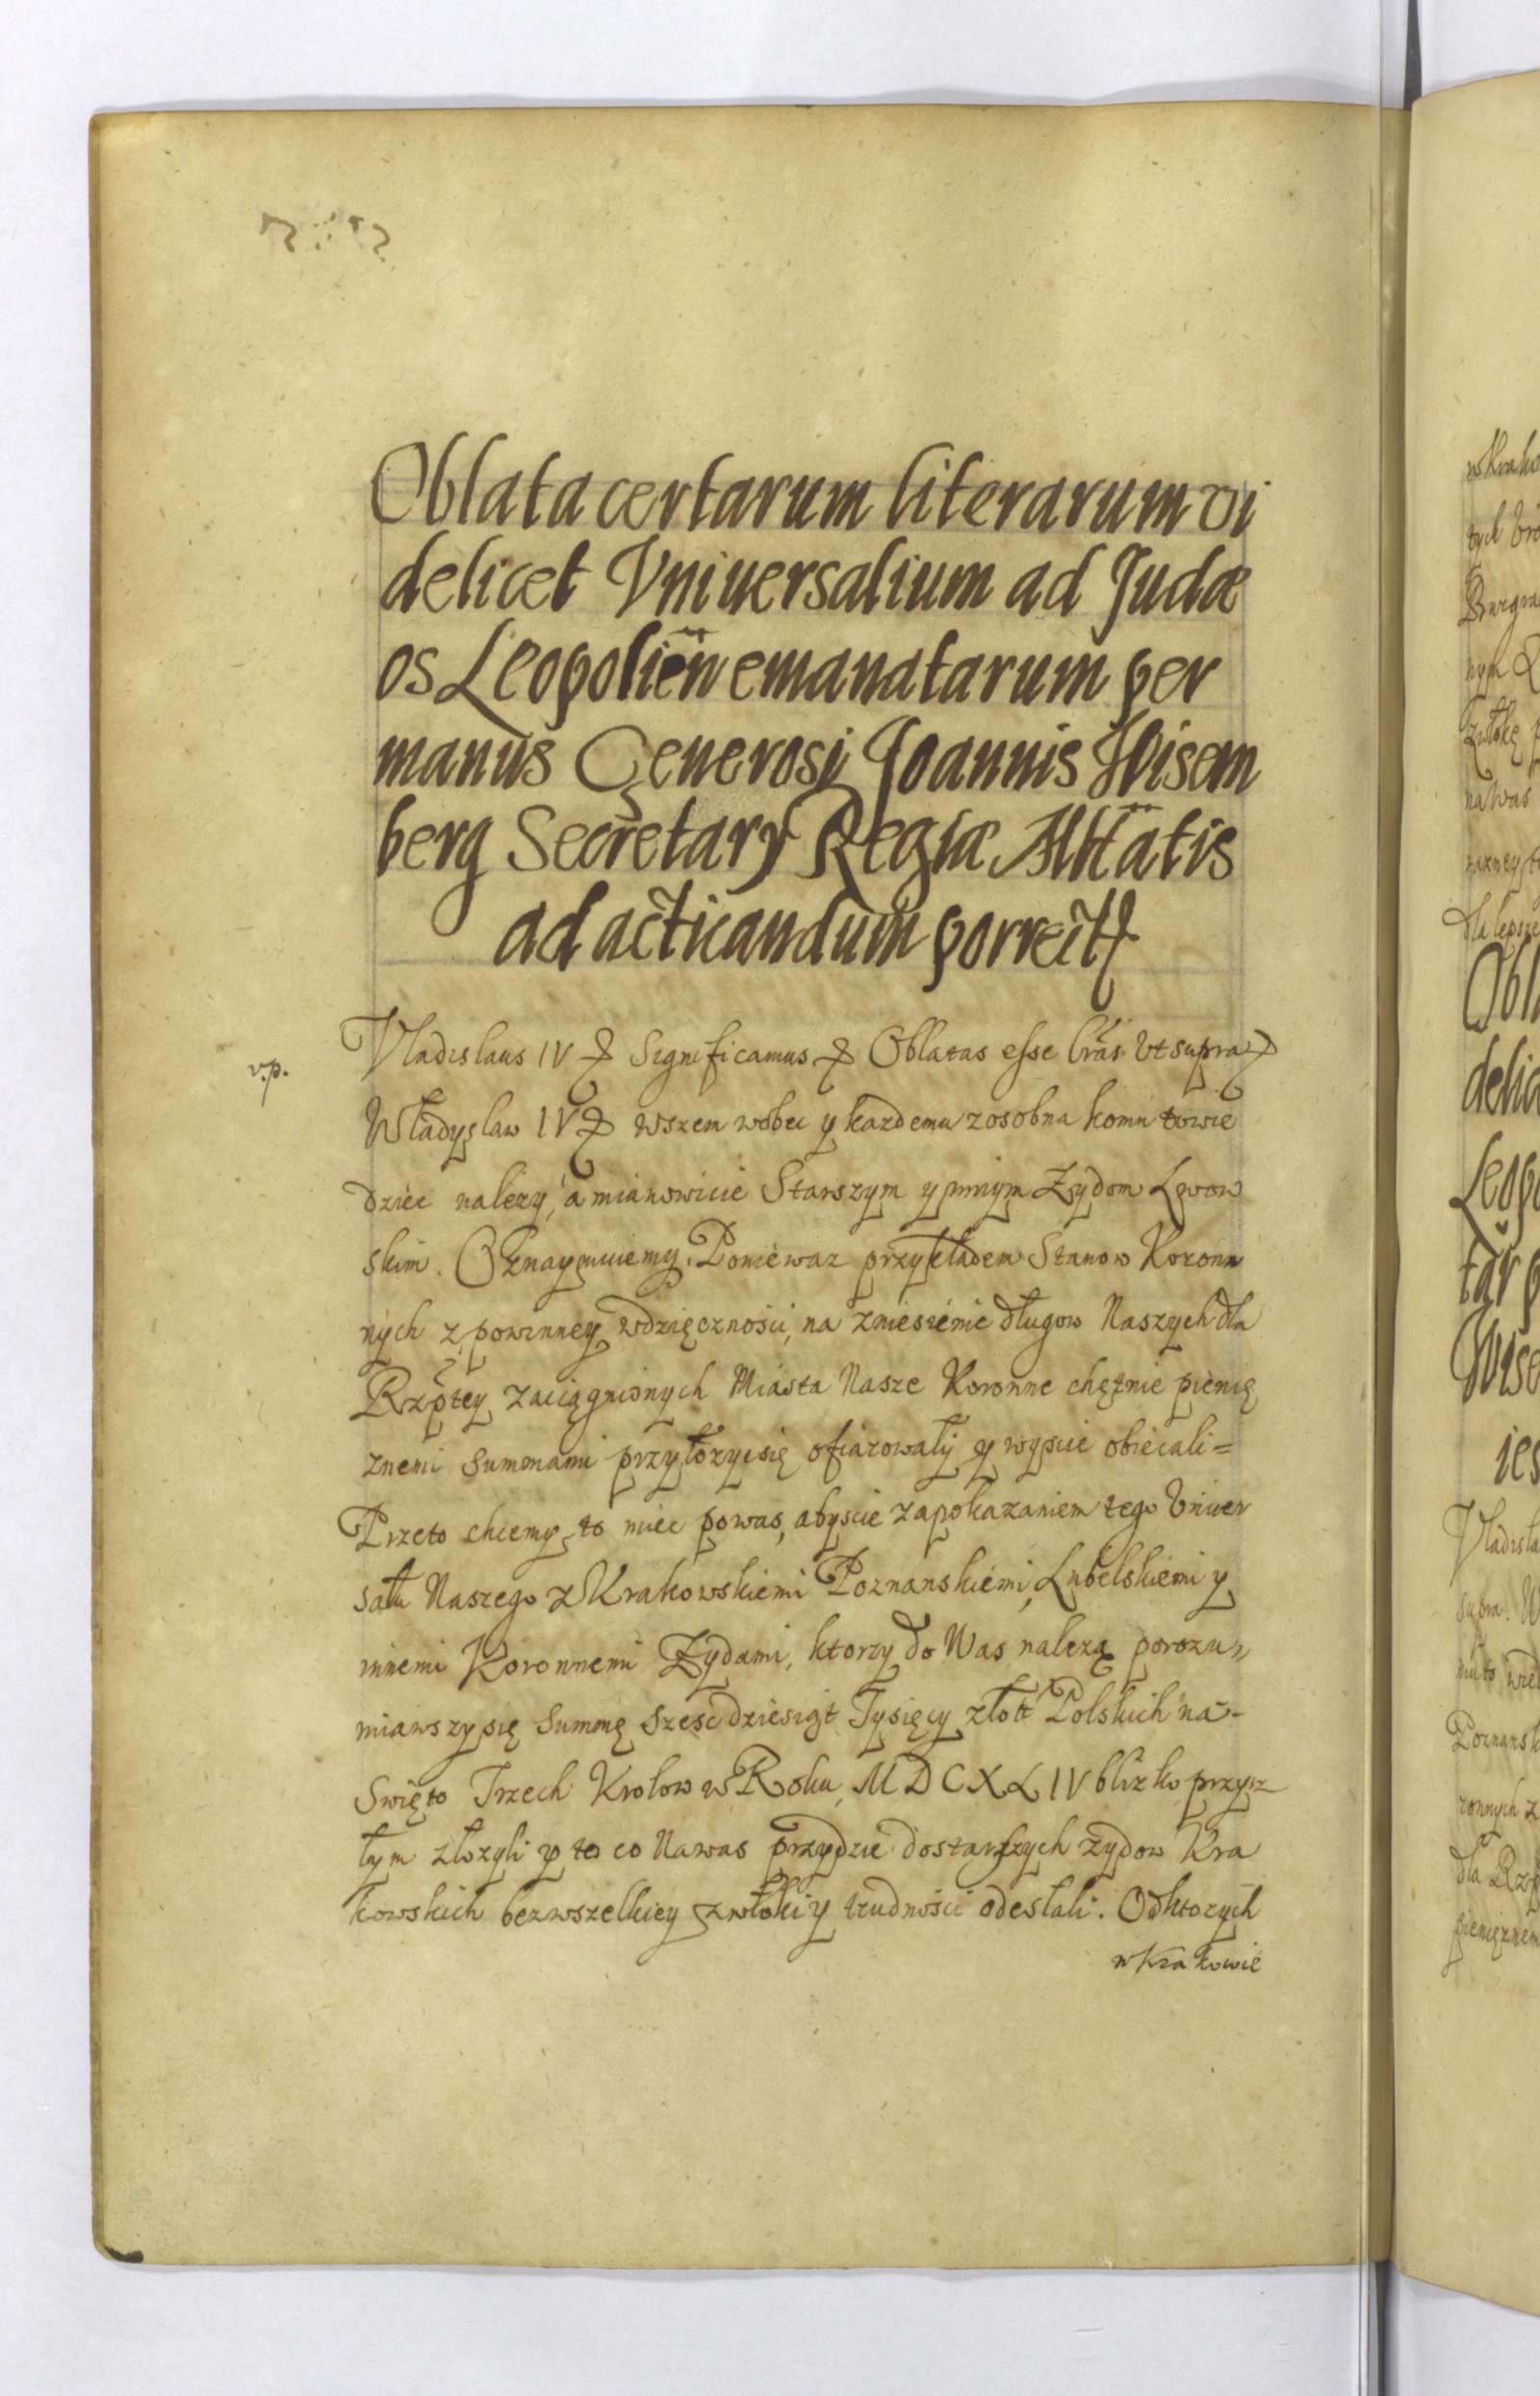 Oblata certarum literarum vi
delicet Vniuersalium ad Judæ
os Leopolien̄ emanatarum per
manus Generosi Joannis Wisem
berg Secretarÿ Regiæ Mttatis
ad acticandum porrect
v.p.
Vladislaus IV Significamus Oblatas esse lrãs Vt supra
Władysław IV wszem wobec y kazdemu zosobna komu towie
dziec nalezy, a mianowicie Starszym y innym Zydom Lwow
skim. Oznaymuiemy. Poniewaz przykładem Stanow Koronn
nych z powinney wdzięcznosci, na zniesienie długow Naszych dla
Rzptey zaciągnionych Miasta Nasze Koronne chętnie pienię
znemi Summami przyłozyc się ofiarowały y wyscie obiecali=
Przeto chcemy to miec powas, abyscie zapokazaniem tego Vniwer
sału Naszego z Krakowskiemi Poznanskiemi, Lubelskiemi y
innemi Koronnemi Zydami, ktorzy do Was nalezą porozu,
miawszy się Summę szescdziesiąt Tysięcy złott Polskich na-
Swięto Trzech Krolow w Roku MDCXLIV blizko przysz
łym złozyli y to co Nawas przydzie dostarszych zydow Kra
kowskich bezwszelkiey zwłoki y trudnosci odesłali. Odktorych
w Krakowie